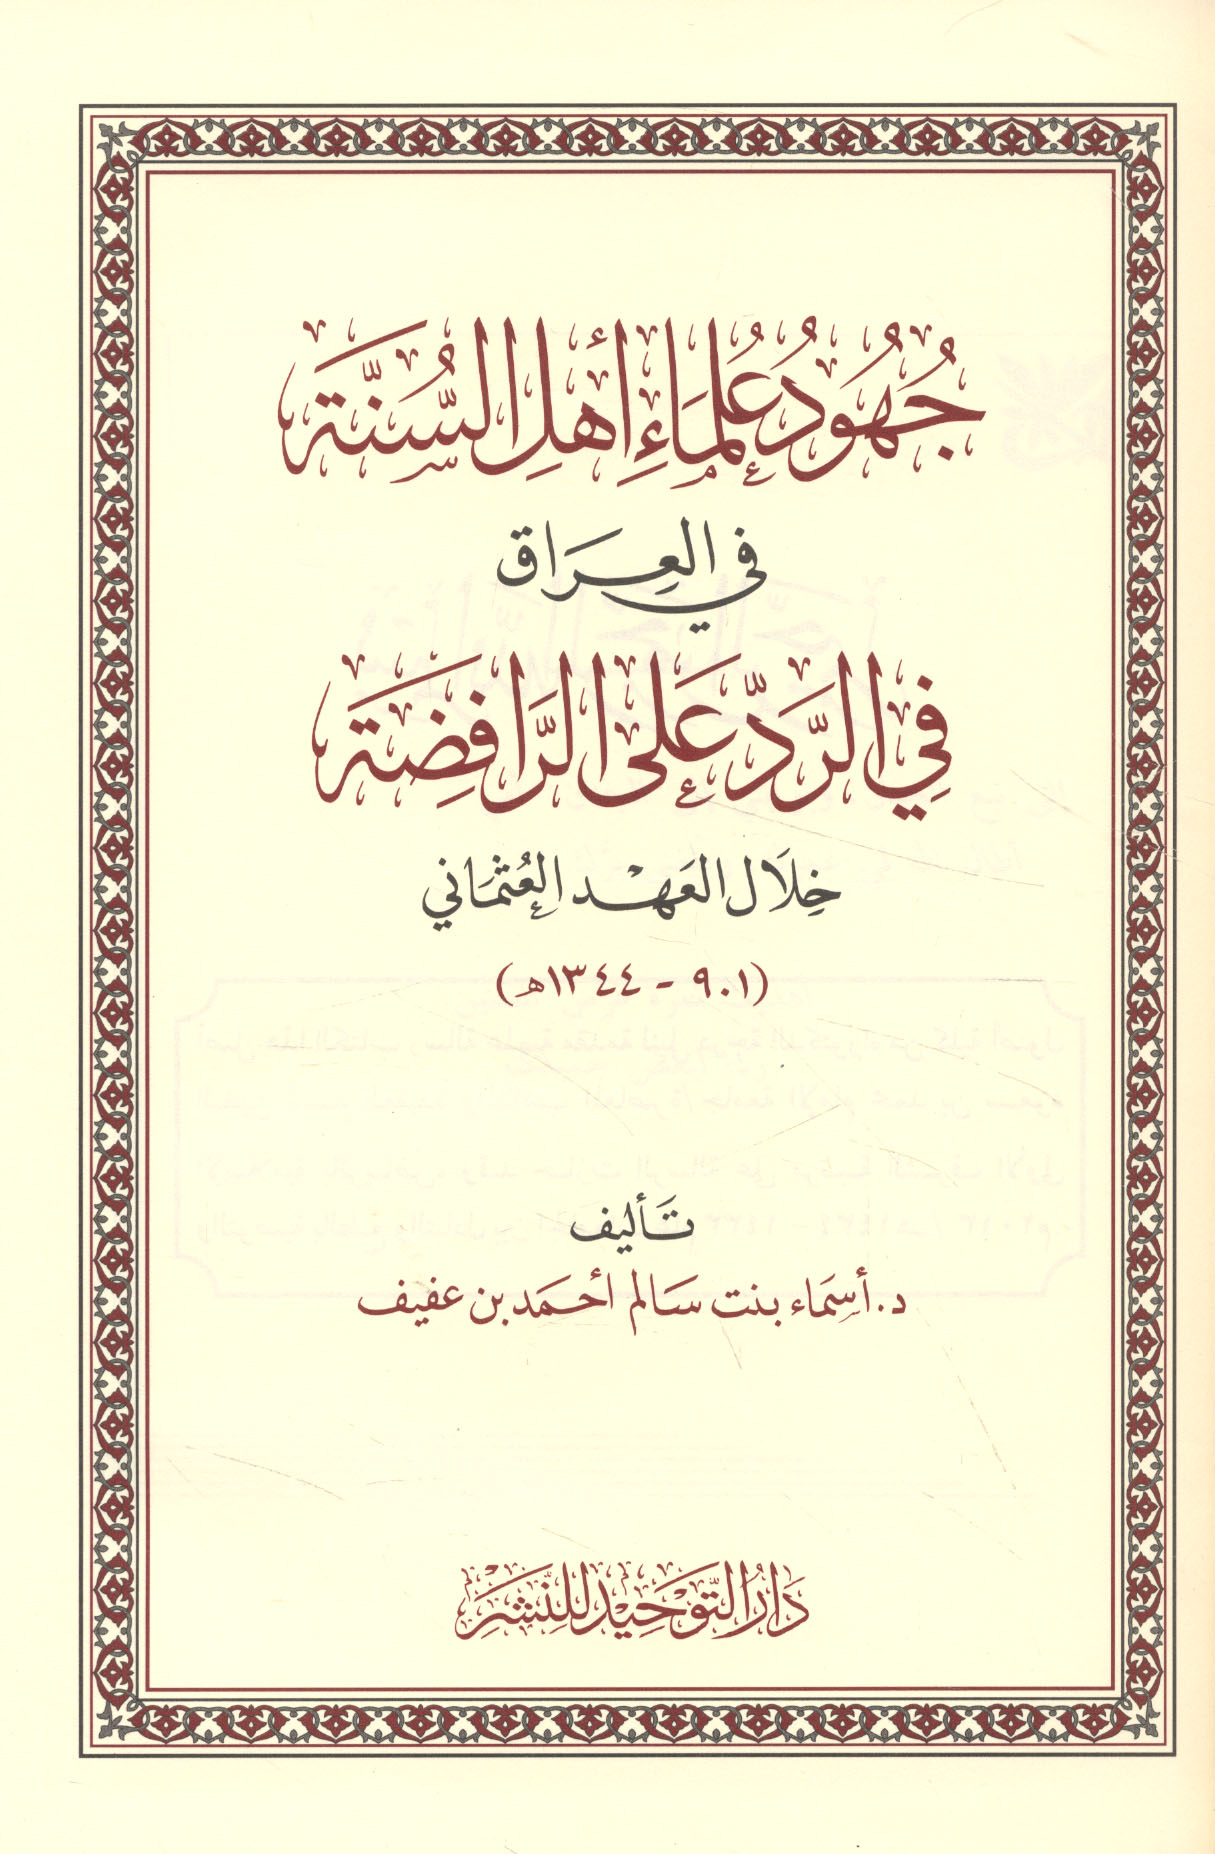 جُهُودُ عُلَمَاءِ أَهْلِ السُّنَّة
في العِرَاق
فِي الرَّدِّ عَلَى الرَّافِضَة
خِلَال العَهْد العُثمَاني
(٩٠١ - ١٣٤٤هـ)
تَأليف
د. أسمَاء بنت سَالم أحمَد بن عفيف
دَارُ التَّوْحِيد لِلنَّشْر